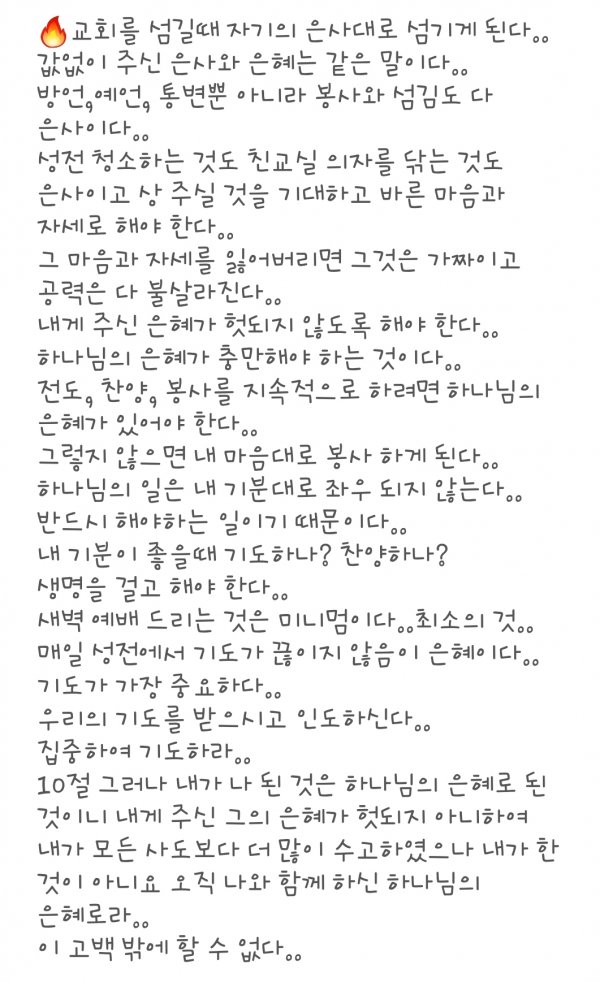 🔥교회를 섬길때 자기의 은사대로 섬기게 된다..
값없이 주신 은사와 은혜는 같은 말이다..
방언,예언, 통변뿐 아니라 봉사와 섬김도 다
은사이다..
성전 청소하는 것도 친교실 의자를 닦는 것도
은사이고 상 주실 것을 기대하고 바른 마음과
자세로 해야 한다..
그 마음과 자세를 잃어버리면 그것은 가짜이고
공력은 다 불살라진다..
내게 주신 은혜가 헛되지 않도록 해야 한다..
하나님의 은혜가 충만해야 하는 것이다..
전도, 찬양, 봉사를 지속적으로 하려면 하나님의
은혜가 있어야 한다..
그렇지 않으면 내 마음대로 봉사 하게 된다..
하나님의 일은 내 기분대로 좌우 되지 않는다..
반드시 해야하는 일이기 때문이다..
내 기분이 좋을때 기도하나? 찬양하나?
생명을 걸고 해야 한다..
새벽 예배 드리는 것은 미니멈이다..최소의 것..
매일 성전에서 기도가 끊이지 않음이 은혜이다..
기도가 가장 중요하다..
우리의 기도를 받으시고 인도하신다..
집중하여 기도하라..
10절 그러나 내가 나 된 것은 하나님의 은혜로 된
것이니 내게 주신 그의 은혜가 헛되지 아니하여
내가 모든 사도보다 더 많이 수고하였으나 내가 한
것이 아니요 오직 나와 함께 하신 하나님의
은혜로라..
이 고백 밖에 할 수 없다..